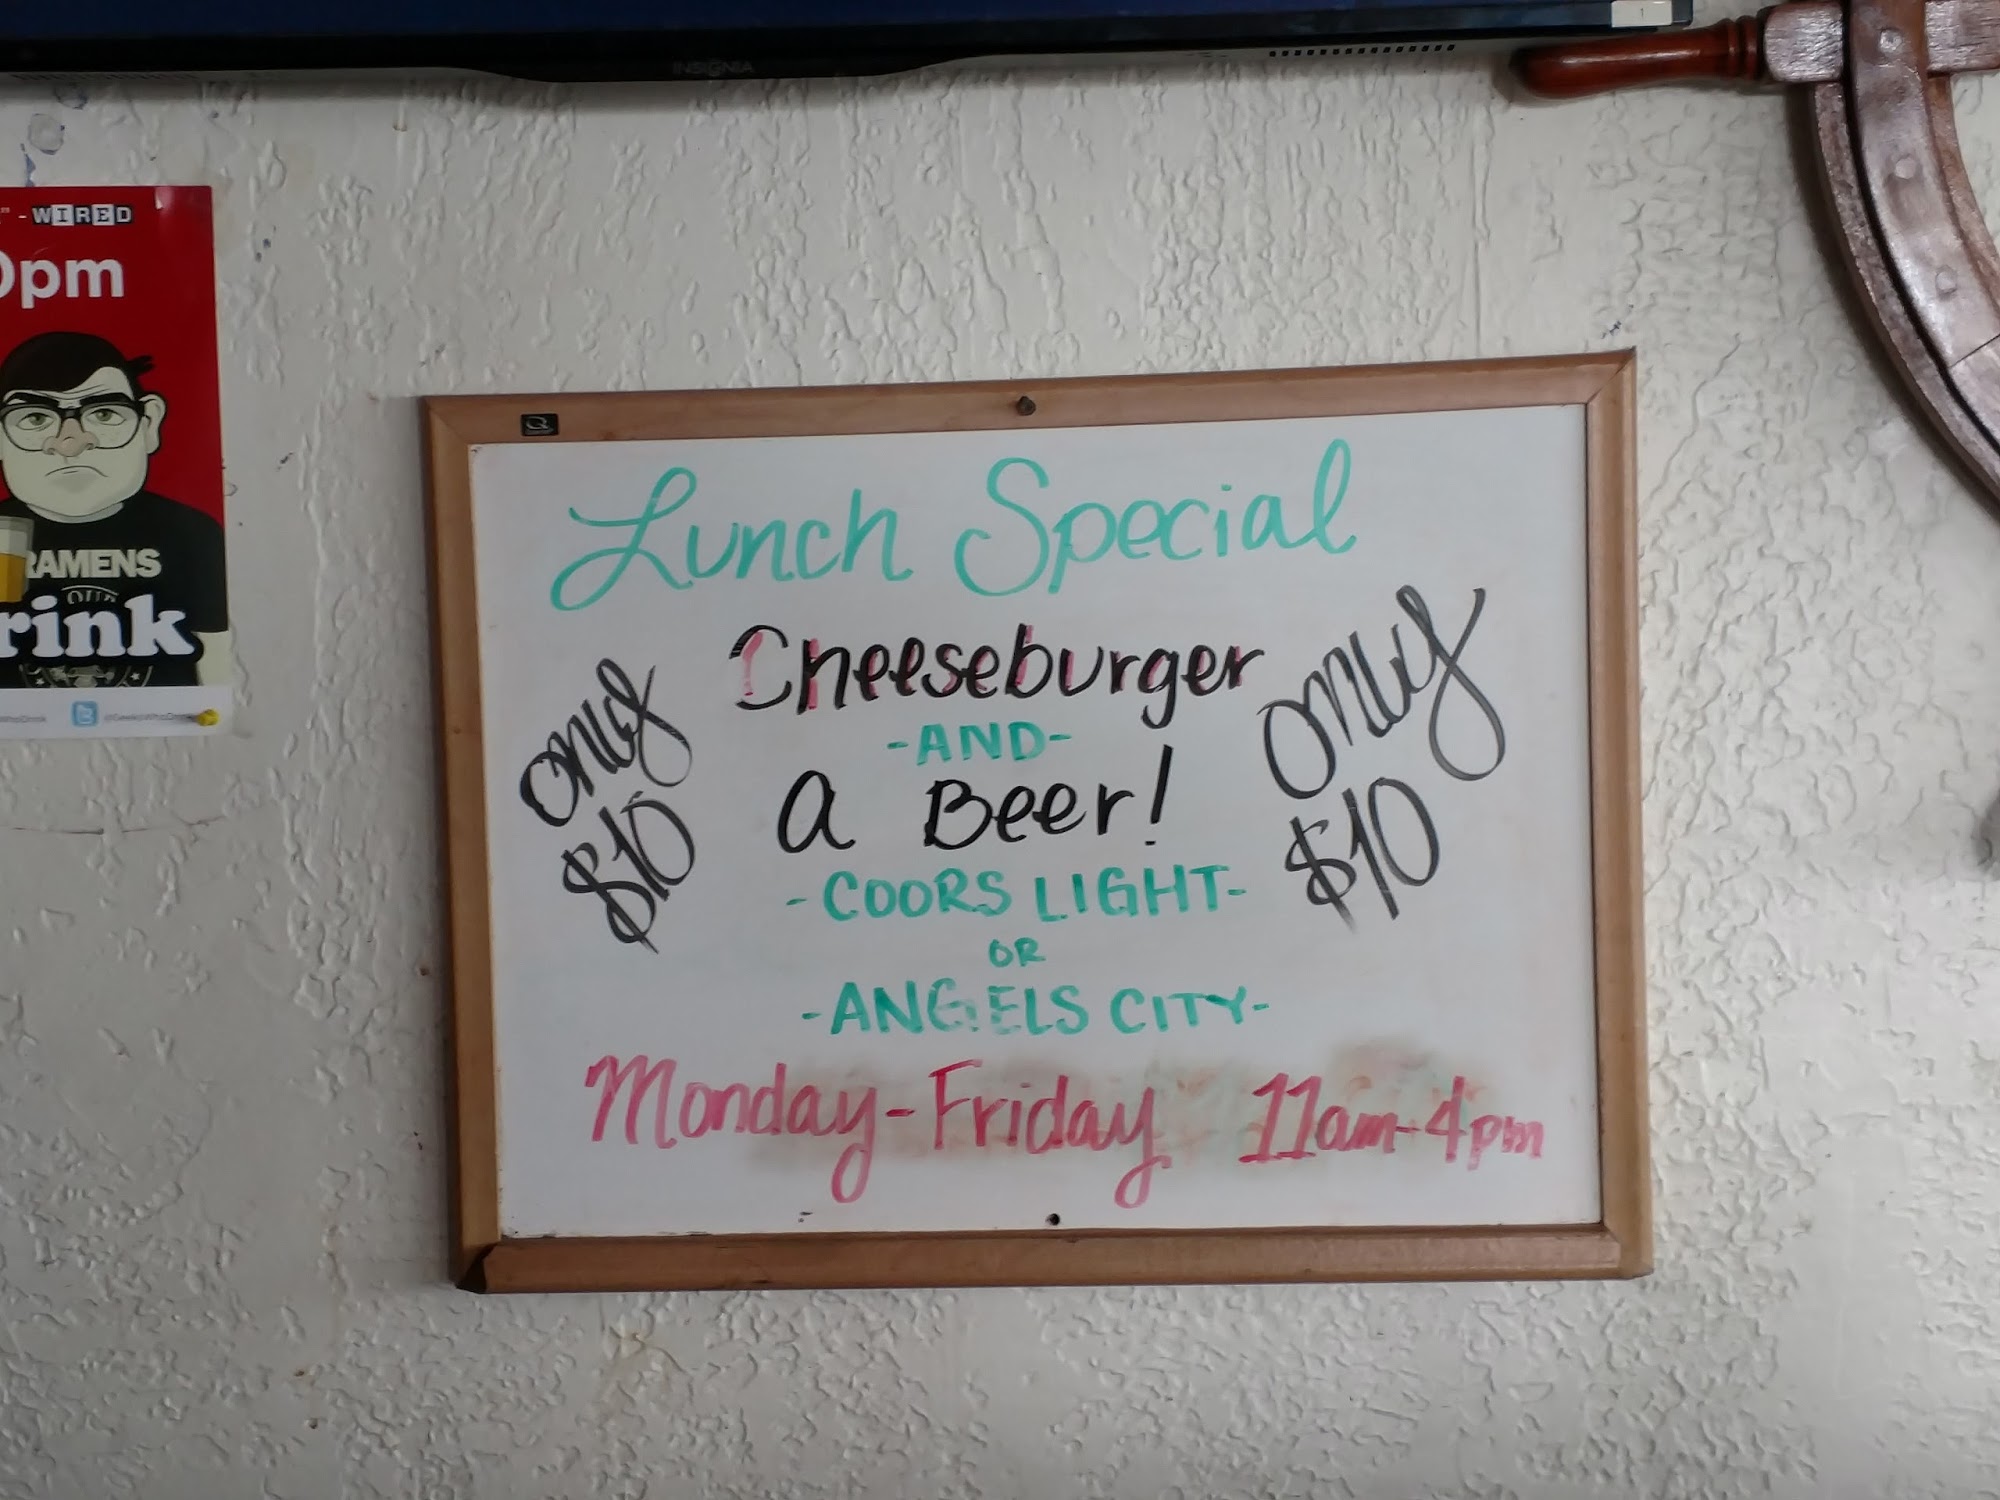 INSIGNIA
1
" - WIRED
0pm
RAMENS
OUR
rink
WhoDrink @GeeksWhoDrink
Lunch Special
Cheeseburger
-AND-
A Beer!
only
$10
only
$10
-COORS LIGHT-
OR
-ANGELS CITY-
Monday-Friday 11am-4pm